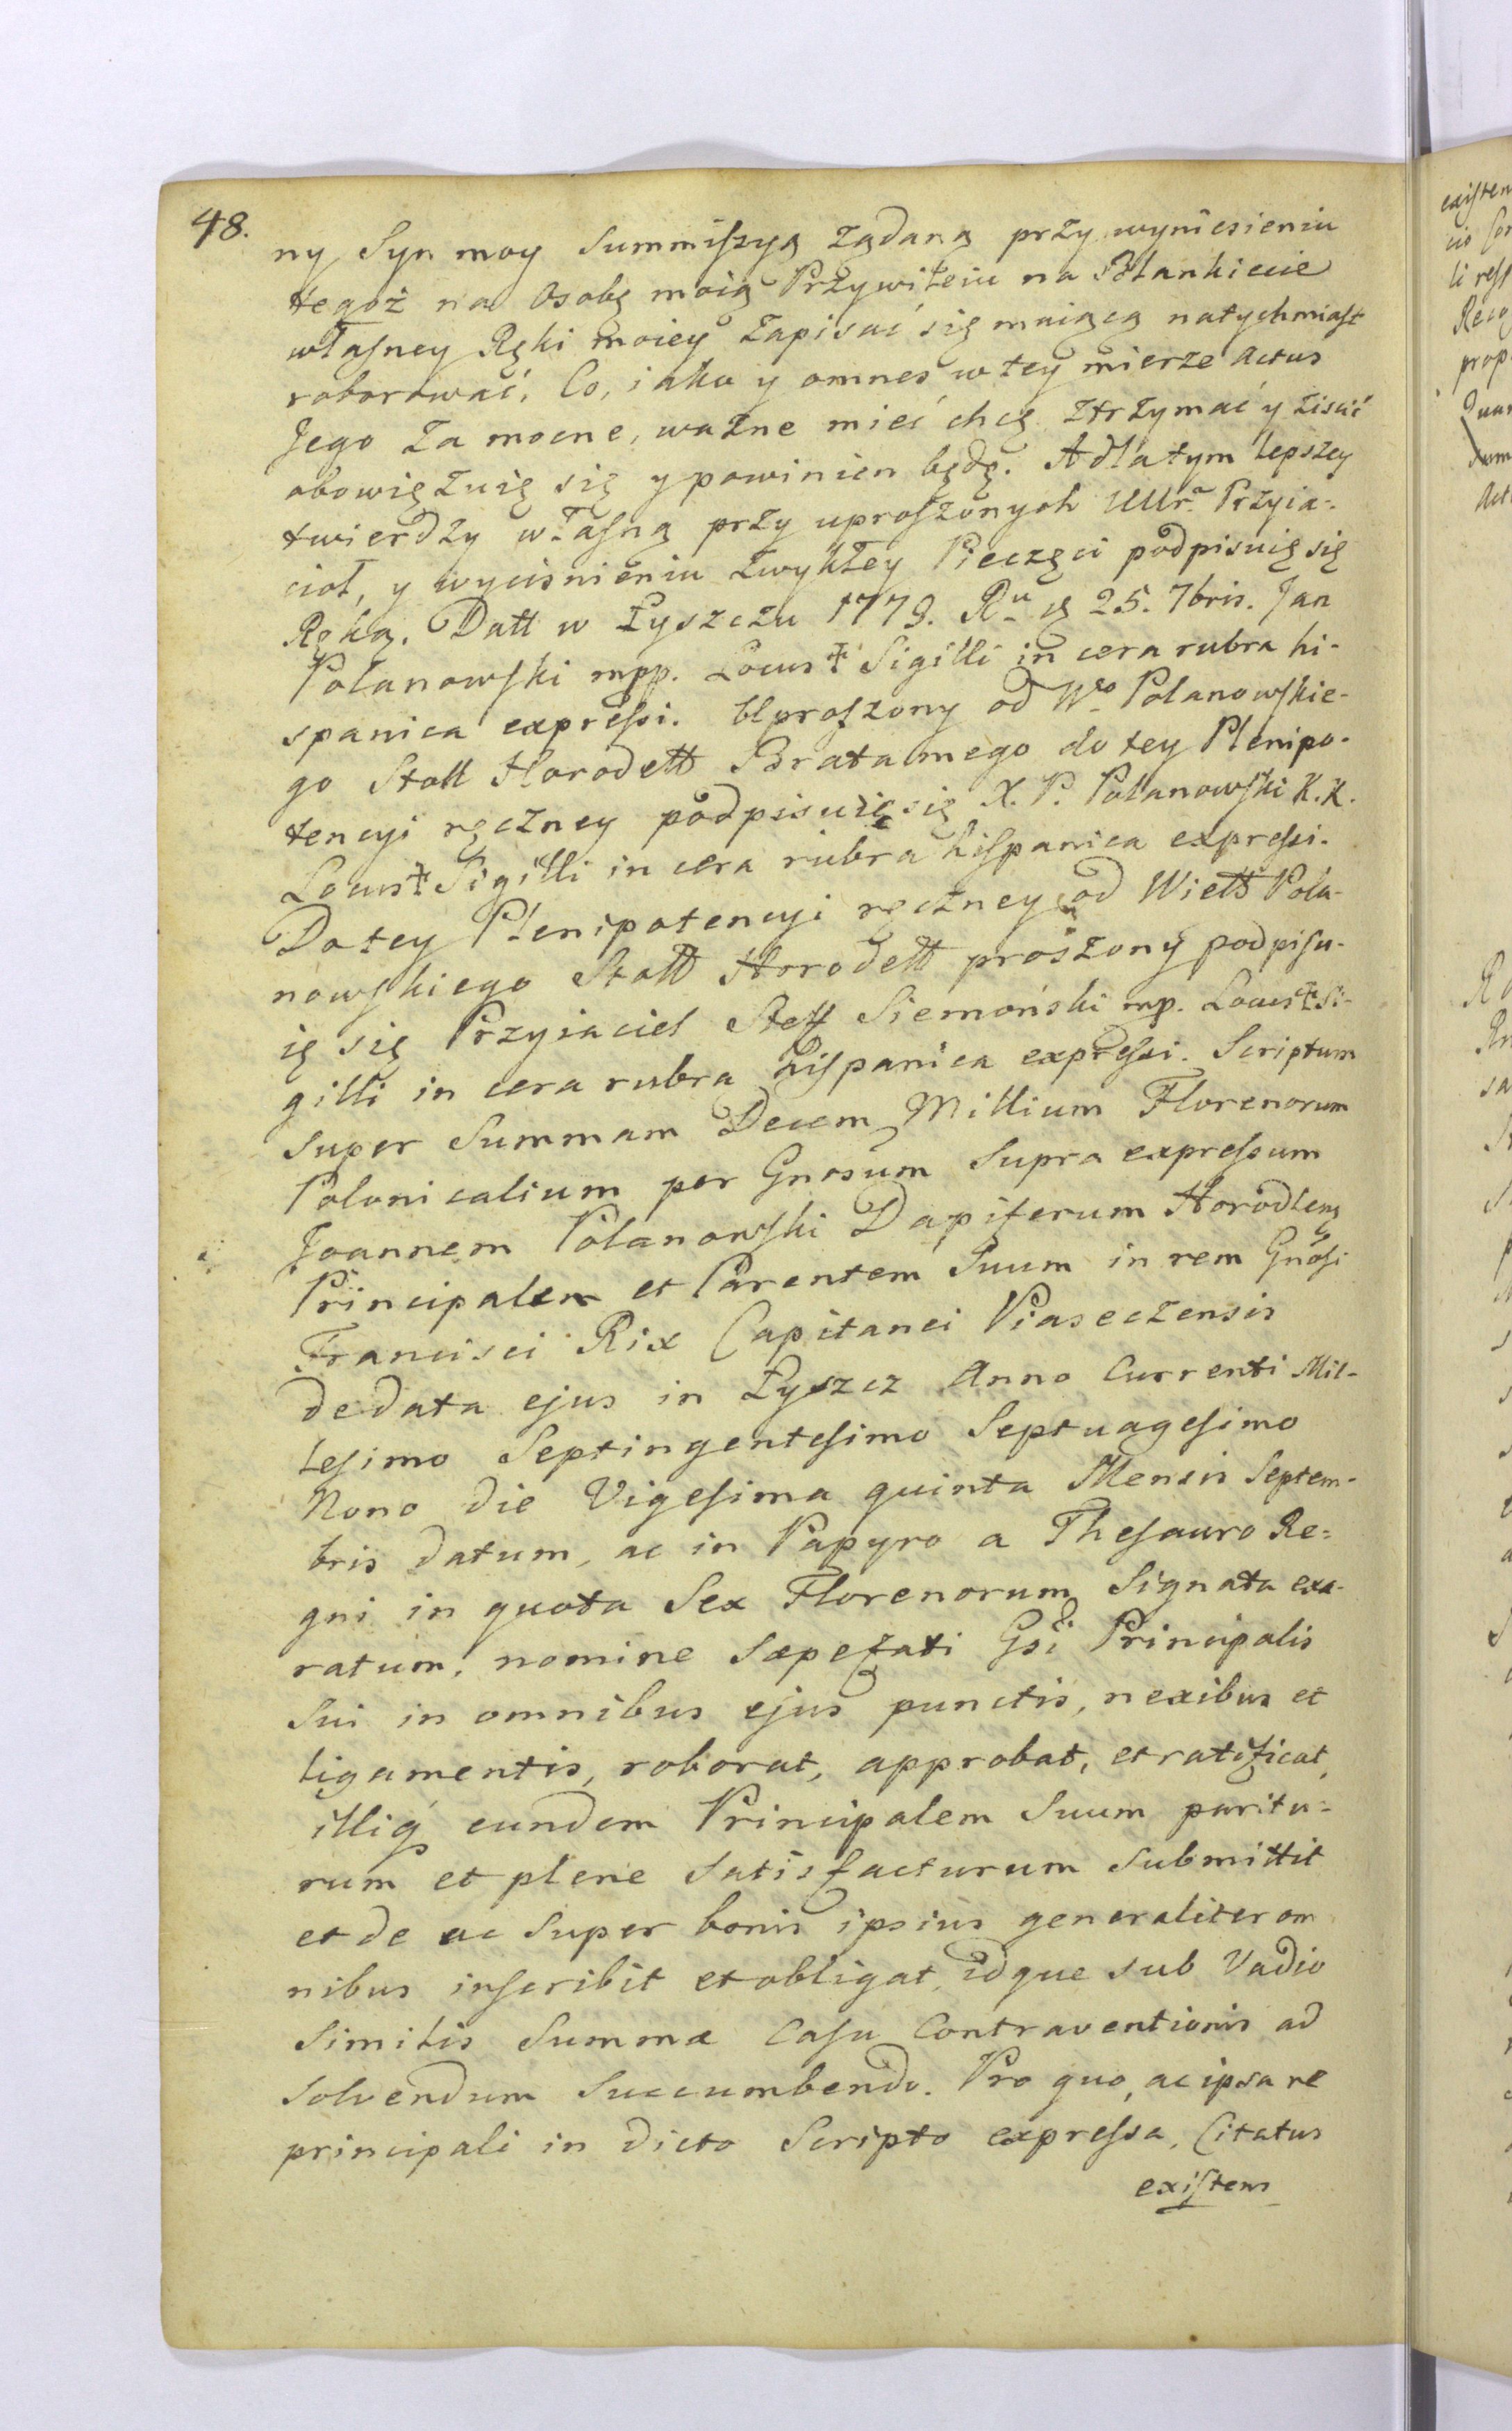 48.
ny Syn moy Summiſsyą żądaną przy wyniesieniu
tegoż na Osobę moię Przywileiu na Blankiecie
właſney Ręki moiey zapisać się maiącą natychmiaſt
roborować. Co, iako y omnes w tey mierze actus
Jego za mocne, ważne mieć chcę ztrzymać y ziścić
obowięzuię się y powinien będę. A dla tym lepszey
twierdzy właſną przy uproſzonych Ur. Przyia-
ciół, y wyciśnieniu zwykłey Pieczęci podpisuię się
Ręką. Datt w Łyszczu 1779. Ru d 25. 7bris. Jan
Polanowſki mpp. Locus ‡ Sigilli in cera rubra hi-
spanica expreſsi. Uproſzony od Wgo Polanowſkie-
go Stoll Horodell Brata mego do tey Plenipo-
tencyi ręczney podpisuię się X. P. Polanowſki K. K.
Locus ‡ Sigilli in cera rubra hiſpanica expreſsi.
Do tey Plenipotencyi ręczney od Wiell Pola-
nowſkiego Stoll Horodell proszony podpiſu-
ię się Przyiaciel Steff Siemoński mp. Locus ‡ Si-
gilli in cera rubra hiſpanica expreſsi. Scriptum
super Summam Decem Millium Florenorum
Polonicalium per Gnosum Supra expreſsum
Joannem Polanowſki Dapiferum Horodlens
Principalem et Parentem Suum in rem Gnosi
Francisci Rix Capitanei Piaseczensis
de data ejus in Łyszcz Anno Currenti Mil-
leſimo Septingenteſimo Septuageſimo
Nono die Vigeſima quinta Mensis Septem-
bris datum, ac in Papyro a Theſauro Re-
gni in quota Sex Florenorum Signata exa-
ratum, nomine Sæpefati Gsi Principalis
Sui in omnibus ejus punctis, nexibus et
ligamentis, roborat, approbat, et ratificat,
illiq eundem Principalem Suum paritu-
rum et plene Satisfacturum Submittit
et de ac Super bonis ipsius generaliter om
nibus inſcribit et obligat, idque sub Vadio
Similis Summæ Caſu Contraventionis ad
Solvendum Succumbendo. Pro quo, ac ipsa re
principali in dicto Scripto expreſsa, Citatus
exiſtens